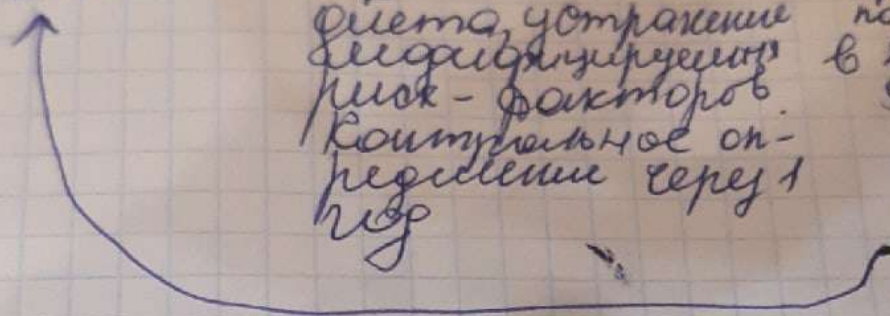 диета, устранение по
модифицируемых в
риск-факторов.
Контрольное оп-
ределение через 1
год